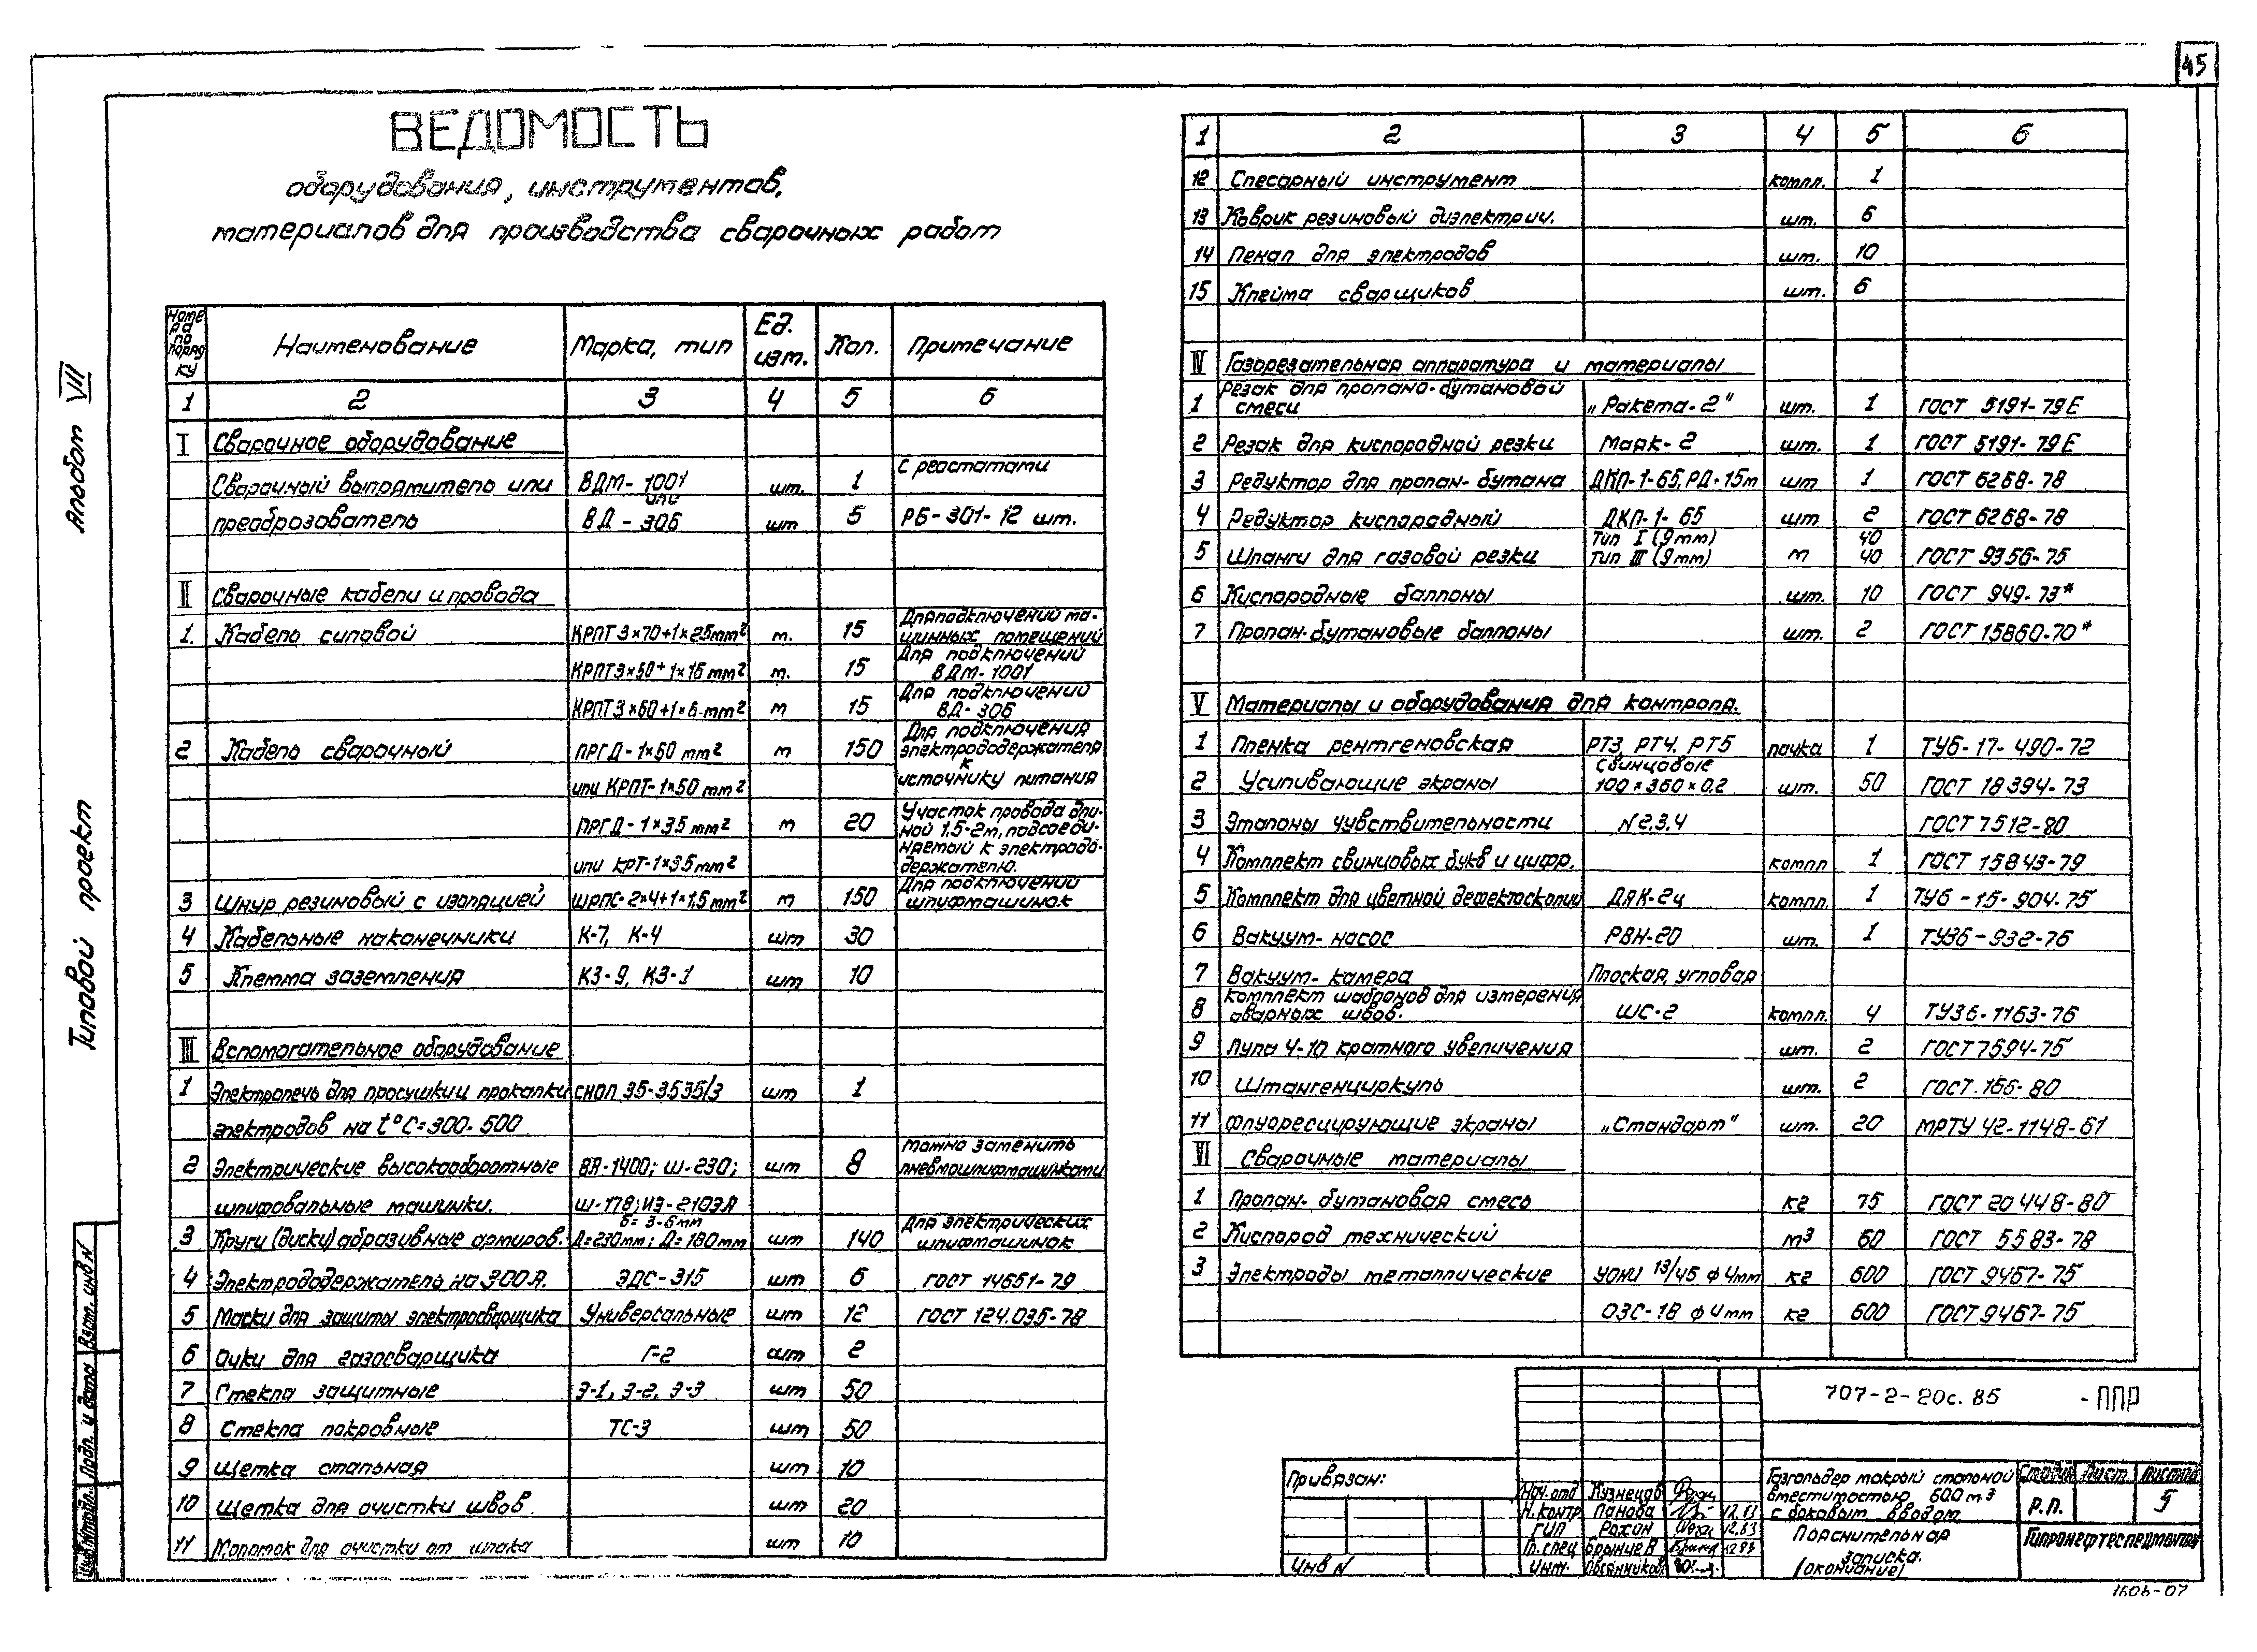 45
ВЕДОМОСТЬ
оборудования, инструментов,
материалов для производства сварочных работ
Альбом VII
Типовой проект
Номера по порядку | Наименование | Марка, тип | Ед. изм. | Кол. | Примечание
1 | 2 | 3 | 4 | 5 | 6
I Сварочное оборудование
Сварочный выпрямитель или | ВДМ-1001 или | шт. | 1 | С реостатами
преобразователь | ВД-306 | шт | 5 | РБ-301-12 шт.
II Сварочные кабели и провода
1. Кабель силовой | КРПТ 3×70+1×25мм² | м. | 15 | Для подключений машинных помещений
КРПТ 3×50+1×16 мм² | м. | 15 | Для подключений ВДМ-1001
КРПТ 3×60+1×6 мм² | м | 15 | Для подключений ВД-306
2 Кабель сварочный | ПРГД-1×50 мм² | м | 150 | Для подключения электрододержателя к источнику питания
или КРПТ-1×50 мм²
ПРГД-1×35 мм² | м | 20 | Участок провода длиной 1.5-2м, подсоединяемый к электрододержателю.
или КРТ-1×35 мм²
3 Шнур резиновый с изоляцией | ШРПС-2×4+1×1,5мм² | м | 150 | Для подключений шлифмашинок
4 Кабельные наконечники | К-7, К-4 | шт | 30
5 Клемма заземления | КЗ-9, КЗ-1 | шт | 10
III Вспомогательное оборудование
1 Электропечь для просушки и прокалки | СНОЛ 35-3535/3 | шт | 1
электродов на t°C=300-500
2 Электрические высокооборотные | ВЯ-1400; Ш-230; | шт | 8 | можно заменить пневмошлифмашинками
шлифовальные машинки. | Ш-178; ИЭ-2103А
3 Круги (диски) абразивные армиров. | б=3-6мм Д=230мм; Д=180мм | шт | 140 | Для электрических шлифмашинок
4 Электрододержатель на 300А. | ЭДС-315 | шт | 6 | ГОСТ 14651-79
5 Маски для защиты электросварщика | Универсальные | шт | 12 | ГОСТ 124.035-78
6 Очки для газосварщика | Г-2 | шт | 2
7 Стекла защитные | Э-1, Э-2, Э-3 | шт | 50
8 Стекла покровные | ТС-3 | шт | 50
9 Щетка стальная | шт | 10
10 Щетка для очистки швов. | шт | 20
11 Молоток для очистки от шлака | шт | 10
1 | 2 | 3 | 4 | 5 | 6
12 Слесарный инструмент | компл. | 1
13 Коврик резиновый диэлектрич. | шт. | 6
14 Пенал для электродов | шт. | 10
15 Клейма сварщиков | шт. | 6
IV Газорезательная аппаратура и материалы
1 Резак для пропано-бутановой смеси | „Ракета-2" | шт. | 1 | ГОСТ 5191-79Е
2 Резак для кислородной резки | Маяк-2 | шт. | 1 | ГОСТ 5191-79Е
3 Редуктор для пропан-бутана | ДКП-1-65, РД-15м | шт | 1 | ГОСТ 6268-78
4 Редуктор кислородный | ДКП-1-65 | шт | 2 | ГОСТ 6268-78
5 Шланги для газовой резки | Тип I (9мм) Тип III (9мм) | м | 40 40 | ГОСТ 9356-75
6 Кислородные баллоны | шт. | 10 | ГОСТ 949-73*
7 Пропан-бутановые баллоны | шт. | 2 | ГОСТ 15860-70*
V Материалы и оборудования для контроля.
1 Пленка рентгеновская | РТ3, РТ4, РТ5 | пачка | 1 | ТУ6-17-490-72
2 Усиливающие экраны | свинцовые 100×360×0.2 | шт. | 50 | ГОСТ 18394-73
3 Эталоны чувствительности | N2.3.4 | ГОСТ 7512-80
4 Комплект свинцовых букв и цифр. | компл | 1 | ГОСТ 15843-79
5 Комплект для цветной дефектоскопии | ДАК-2ц | компл. | 1 | ТУ6-15-904-75
6 Вакуум-насос | РВН-20 | шт. | 1 | ТУ36-932-76
7 Вакуум-камера | Плоская, угловая
8 Комплект шаблонов для измерения сварных швов. | ШС-2 | компл. | 4 | ТУ36-1163-76
9 Лупа 4-10 кратного увеличения | шт. | 2 | ГОСТ 7594-75
10 Штангенциркуль | шт. | 2 | ГОСТ.166-80
11 Флуоресцирующие экраны | „Стандарт" | шт. | 20 | МРТУ 42-1148-61
VI Сварочные материалы
1 Пропан-бутановая смесь | кг | 75 | ГОСТ 20448-80
2 Кислород технический | м³ | 60 | ГОСТ 5583-78
3 Электроды металлические | УОНИ 13/45 ф4мм | кг | 600 | ГОСТ 9467-75
ОЗС-18 ф4мм | кг | 600 | ГОСТ 9467-75
707-2-20с.85 -ППР
Привязан:
Инв N
Нач.отд Кузнецов
Н.контр Панова 12.83
ГИП Рохин 12.83
Гл.спец Брынцев 12 83
Инж. Овсянников
Газгольдер мокрый стальной
вместимостью 600 м³
с боковым вводом
Стадия | Лист | Листов
Р.П. | 5
Пояснительная
записка.
(окончание)
Гипронефтеспецмонтаж
Инв N подл. | Подп. и дата | Взам. инв N
1606-07